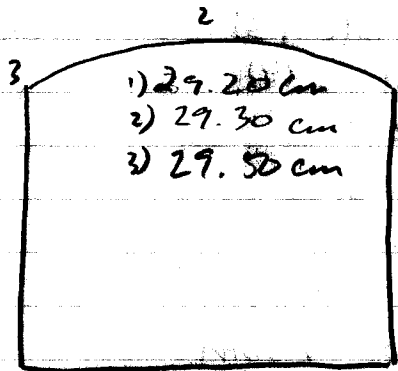 2
3
1) 29.20 cm
2) 29.30 cm
3) 29.50 cm